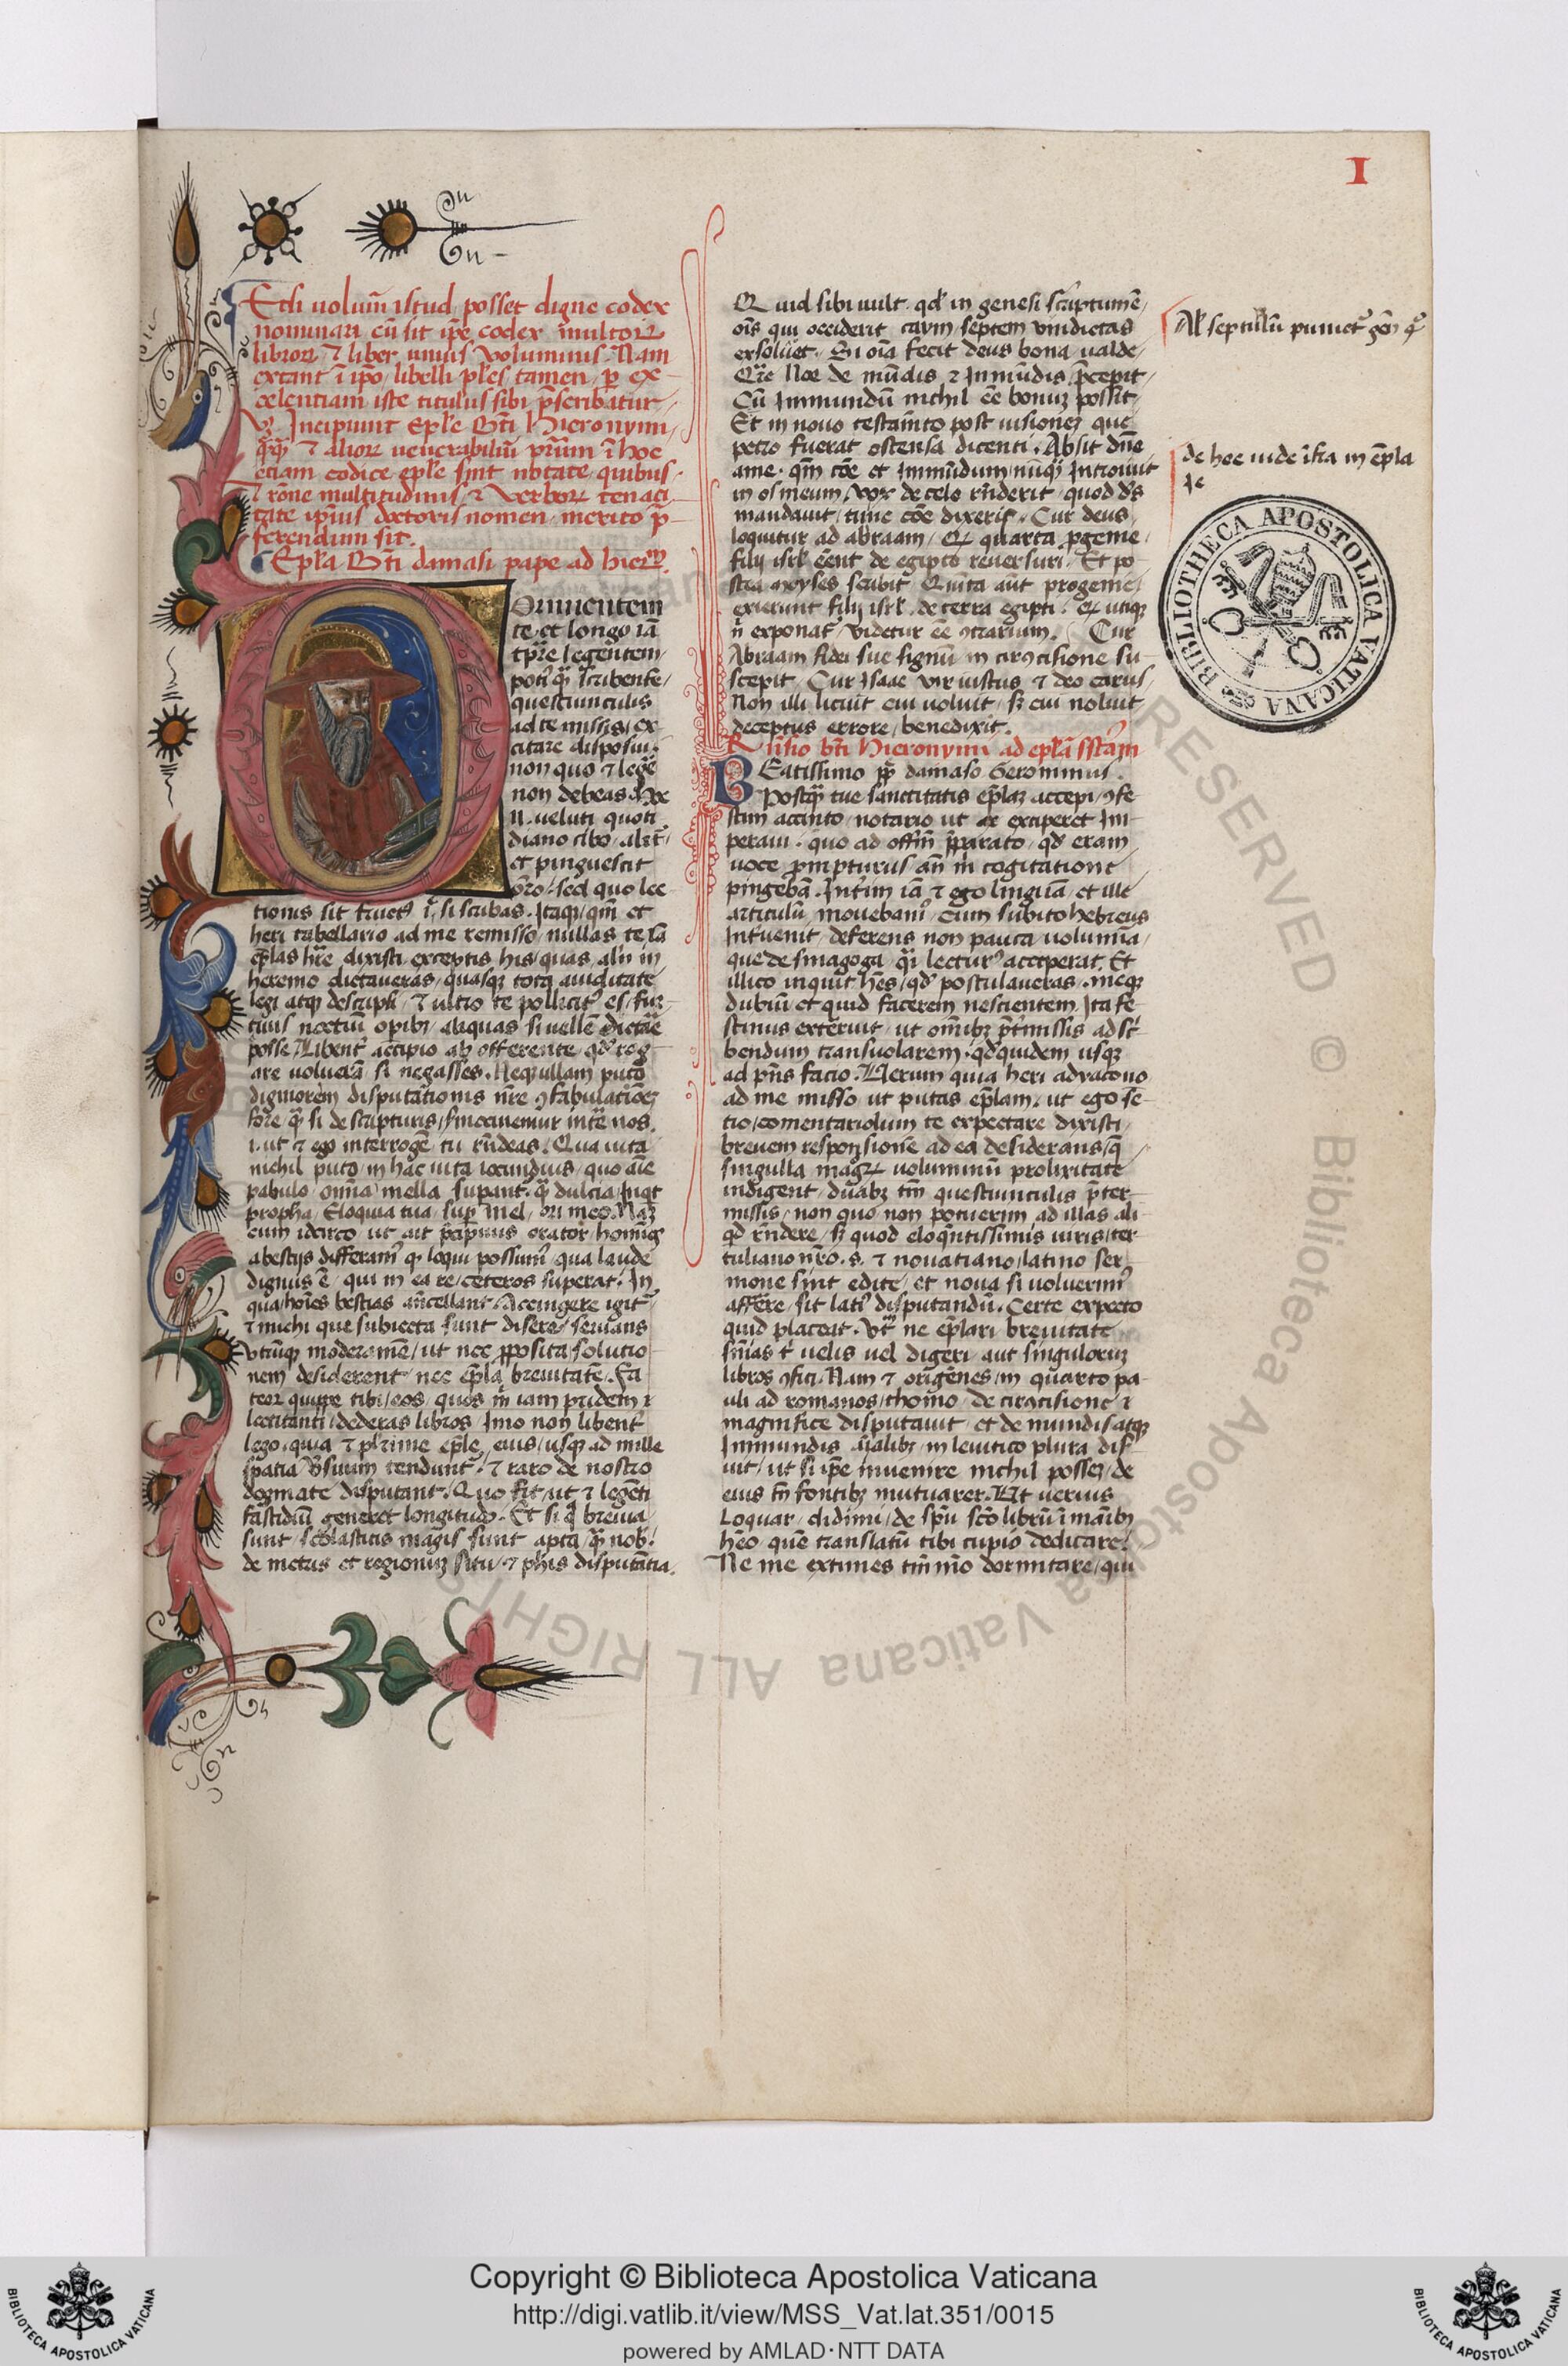 I
Etsi volum̄ istud posset digne codex
nominari cū sit ip̄e codex ī multoꝝ
libroꝝ ⁊ liber unius voluminis. Nam
extant ī ip̄o libelli pl̄es tamen ꝑ ex-
celentiam iste titulus sibi p̄scribatur
vꝫ Incipiunt Ep̄le Bt̄i Hieronymi
⁊ alioꝝ venerabiliū pr̄um ī hoc
etiam codice ep̄le sint notate quibus
rōne multitudinis ⁊ verboꝝ tenaci
tate ip̄ius doctoris nomen merito p̄-
ferendum sit.
Ep̄la Bt̄i damasi pape ad hier
Ormientem
te et longo iā
tp̄re legentem
potiꝰ q̄ scribente
questiunculis
ad te missis ex
citare disposui
non quo ⁊ legē
non debeas. Hoc
n. veluti quoti
diano cibo alit̄
et pinguescit
or̄o sed quo lec
tionis sit fructꝰ ī si scribas. Itaqꝫ qm̄ et
heri tabellario ad me remisso nullas te iā
ep̄las hr̄e dixisti exceptis his quas aln̄ in
heremo dictaveras quasqꝫ tota aviditate
legi atqꝫ descripsi ⁊ ultro te pollicitꝰ es fur-
tivis noctiū opibꝫ aliquas si vellē dictare
posse. Libent̄ accipio ab offerente qd̄ rog-
are volverā si negasses. Neqꝫ ullam puto
digniorem disputationis nr̄e ɔfabulationē
fore q̄ si de scripturis sermocinemur inter nos.
i. ut ⁊ ego interrogē tu rn̄deas. Qua vita
nichil puto in hac vita iocundius quo aīe
pabulo omnia mella suꝑant. q̄ dulcia inqt
propha eloquia tua suꝑ mel ori meo. Naꝫ
cum idcirco ut ait p̄cipuus orator homīes
a bestijs differamꝰ qꝫ loqui possumꝰ qua laude
dignus ē qui in ea re ceteros superat. In
qua hoīes bestias an̄cellant. Accingere igit̄
⁊ michi que subiecta sunt disere servans
utrūqꝫ moderamē ut nec ꝓposita solutio-
nem desiderent nec ep̄la brevitatē. Fa
teor quippe tibi eos quos m̄ iam pridem
lectitanti dederas libros Imo non libent̄
lego quia ⁊ plurime ep̄le eius usqꝫ ad mille
spatia v̄suum tendunt ⁊ raro de nostro
dogmate disputant. Quo fit ut ⁊ legēti
fastidiū generet longitudo. Et si q̄ brevia
sunt scolasticis magis sunt apta q̄ nob.
de metris et regionuꝫ situ ⁊ ph̄is disputātia.
Quid sibi vult qd̄ in genesi scriptum ē
oīs qui occiderit cayn septem vindictas
exsolvet. Si oīa fecit deus bona valde
Qr̄e Noe de mūdis ⁊ Inmūdis p̄cepit
Cū Immundū nichil ēe bonuꝫ possit
Et in novo testam̄to post visioneꝫ que
petro fuerat ostensa dicenti. Absit dn̄e
a me. qm̄ cōe et Immūdum nūqꝫ Introivit
in os meum vox de celo rn̄derit quod ds̄
mandavit tunc cōe dixeris. Cur deus
loquitur ad abraam Qꝫ quarta ꝓgenie
filij isrl̄ ēent de egipto reversuri. Et po
stea moyses scribit Quīta aūt progenie
exierunt filij isrl̄ de terra egipti. Qꝫ utiqꝫ
n̄ exponat̄ videtur ēe ɔtrarium. Cur
Abraam fidei sue signū in circūcisione su-
scepit. Cur Isaac vir iustus ⁊ deo carus
Non illi licuit cui voluit sꝫ cui noluit
deceptus errore benedixit.
Rn̄sio bt̄i Hieronymi ad ep̄lā sst̄am
Beatissimo pp̄ damaso Geronimus.
Postqꝫ tue sanctitatis ep̄laꝫ accepi ɔfe
stim accinto notario ut exciperet Im-
peravi. quo ad offm̄ p̄parato qd̄ eram
voce ꝓmpturus an̄ m̄ cogitatione
pingebā. Int̄im iā ⁊ ego linguā et ille
articulū movebamꝰ cum subito hebreus
Int̄venit deferens non pauca volumīa
que de sinagoga q̄i lecturꝰ acceperat. Et
illico inquit hēs qd̄ postulaveras. meqꝫ
dubiū et quid facerem nescientem Ita fe-
stinus exterruit ut om̄ibꝫ p̄t̄missis ad scri
bendum transvolarem. qd̄ quidem usqꝫ
ad pn̄s facio. Verum quia heri ad yacono
ad me misso ut putas ep̄lam. ut ego sē-
tio comentariolum te expectare dixisti
brevem responsionē ad ea desiderans q̄
singulla magꝝ voluminū prolixitate
indigent duābꝫ tm̄ questiunculis p̄ter-
missis non quo non potuerim ad illas ali
qd̄ rn̄dere sꝫ quod eloqn̄tissimis viris ter
tuliano nr̄o. s. ⁊ novatiano latino ser-
mone sint edite et nova si voluerimꝰ
afferre sit latiꝰ disputandū. Certe expecto
quid placeat. Vtꝝ ne ep̄lari brevitate
sn̄ias t̄ velis vel digeri aut singuloruꝫ
libros ɔfici. Nam ⁊ origenes in quarto pa-
uli ad romanos thomo de circūcisione
magnifice disputavit et de mundis atqꝫ
Inmundis aīalibꝫ in levitico plura dis-
uit ut si ip̄e invenire nichil posseꝫ de
eius tn̄ fontibꝫ mutuarer. Et verius
Loquar didimi de sp̄u sc̄o librū ī manibꝫ
hēo quē translatū tibi cupio dedicare.
Ne me extimes tm̄mo dormitare qui
Al̄ septillū puniet̄ gen̄
de hoc vide īfra in ep̄la
BIBLIOTHECA APOSTOLICA VATICANA
ALL RIGHTS RESERVED © Biblioteca Apostolica Vaticana
Copyright © Biblioteca Apostolica Vaticana
http://digi.vatlib.it/view/MSS_Vat.lat.351/0015
powered by AMLAD·NTT DATA
BIBLIOTECA APOSTOLICA VATICANA
BIBLIOTECA APOSTOLICA VATICANA